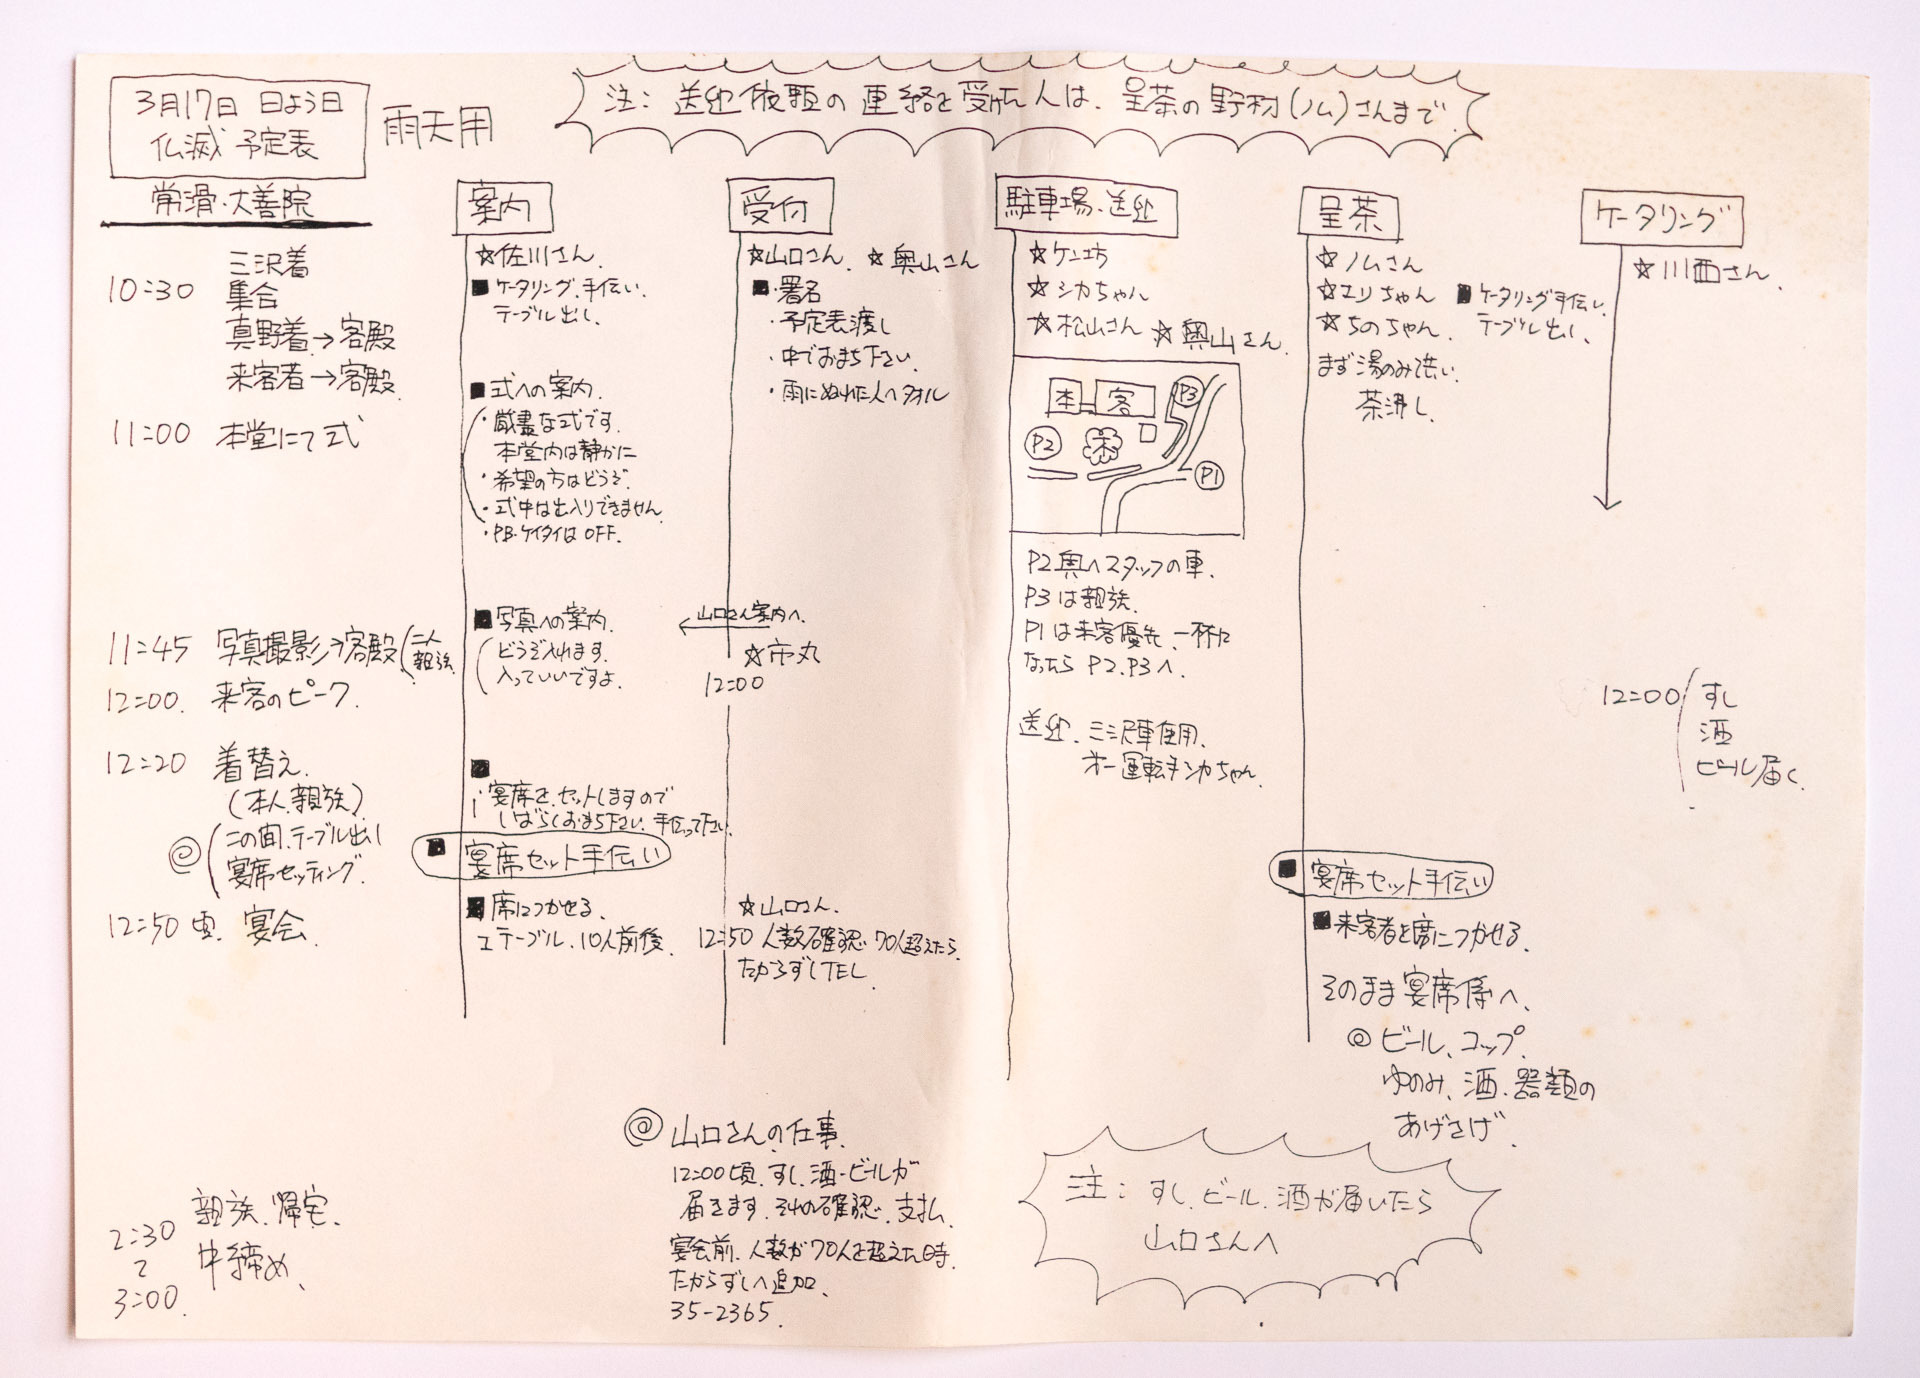 3月17日 日よう日
仏滅 予定表
雨天用
注：送迎依頼の連絡を受けた人は、呈茶の野村(ノム)さんまで
常滑・大善院
10:30
三沢着
集合
真野着→客殿
来客者→客殿
11:00 本堂にて式
11:45 写真撮影→客殿(二人
親族
12:00. 来客のピーク.
12:20 着替え.
(本人、親族)
@ この間、テーブル出し
宴席セッティング.
12:50頃. 宴会.
2:30
〜
3:00.
親族、帰宅、
中締め、
案内
☆佐川さん.
■ケータリング、手伝い.
テーブル出し.
■式への案内.
・厳粛な式です.
本堂内は静かに
・希望の方はどうぞ.
・式中は出入りできません.
・PB・ケイタイはOFF.
■写真への案内.
どうぞ入れます.
入っていいですよ.
■
宴席を、セットしますので
しばらくおまち下さい. 手伝って下さい.
■宴席セット手伝い
■席につかせる.
1テーブル、10人前後
受付
☆山口さん. ☆奥山さん
■・署名
・予定表渡し
・中でおまち下さい.
・雨にぬれた人へタオル
山口さん案内へ.
☆市丸
12:00
☆山口さん.
12:50 人数確認. 70人超えたら.
たからずしTEL.
@山口さんの仕事.
12:00頃. すし、酒・ビールが
届きます. それの確認. 支払.
宴会前. 人数が70人を超えた時.
たからずしへ追加.
35-2365.
駐車場、送迎
☆ケン坊
☆シカちゃん
☆松山さん ☆奥山さん.
本 客 P3
P2 木
P1
P2奥へスタッフの車.
P3は親族.
P1は来客優先、一杯に
なったら P2、P3へ.
送迎、三沢車使用.
オー運転手シカちゃん.
呈茶
☆ノムさん
☆エリちゃん
☆ちのちゃん.
■ケータリング手伝い.
テーブル出し.
まず湯のみ洗い.
茶沸し.
■宴席セット手伝い
■来客者を席につかせる.
そのまま宴席係へ、
@ビール、コップ.
ゆのみ、酒、器類の
あげさげ.
注：すし、ビール、酒が届いたら
山口さんへ
ケータリング
☆川西さん.
12:00 すし
酒
ビール届く.